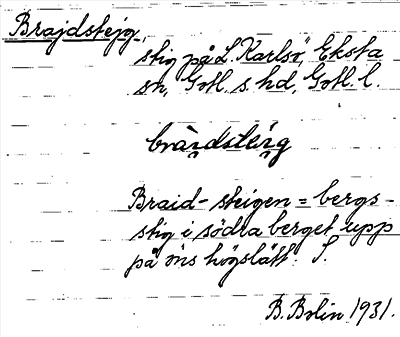 Brajdstejg,
stig på L. Karlsö, Eksta
sn, Gotl. s. hd, Gotl. l.
Braid-steigen = bergs-
stig i södra berget upp
på öns högslätt. S.
B. Bolin 1931.